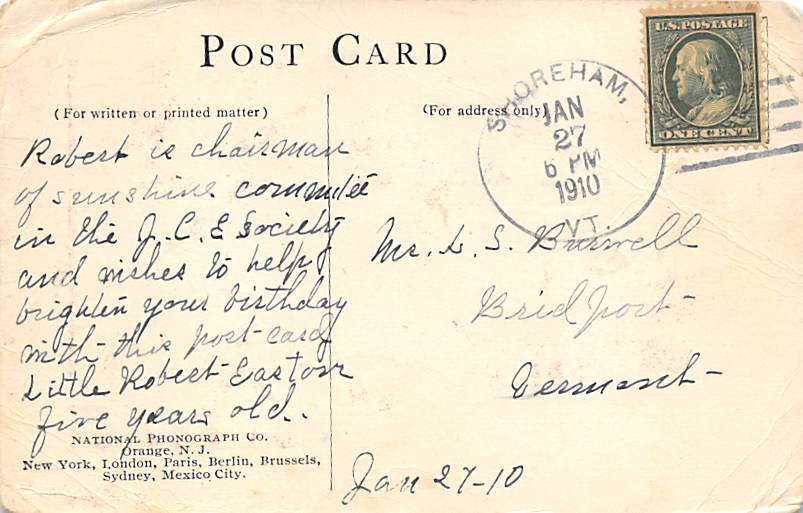 POST CARD
(For written or printed matter)
(For address only)
U.S. POSTAGE
ONE CENT
SHOREHAM,
JAN
27
6 PM
1910
VT.
Robert is chairman
of sunshine committee
in the J. C. E Society
and wishes to help
brighten your birthday
with this post-card
Little Robert Easton
five years old.
Mr. L. S. Burwell
Bridport
Vermont
Jan 27-10
NATIONAL PHONOGRAPH CO.
Orange, N. J.
New York, London, Paris, Berlin, Brussels,
Sydney, Mexico City.